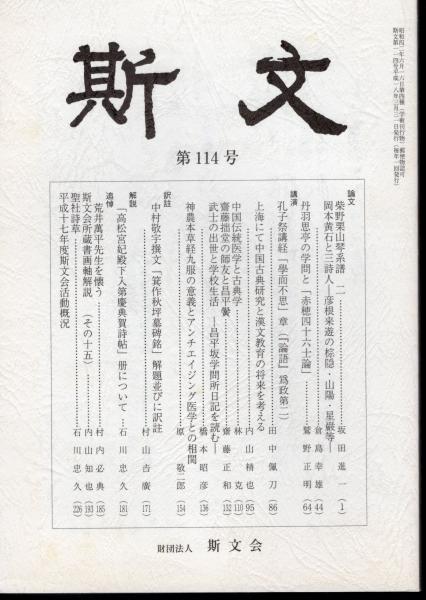 昭和四二年六月一六日第四種(学術刊行物)郵便物認可
斯文第一一四号平成一八年三月三一日発行(毎年一回発行)
斯文
第114号
論文
柴野栗山琴系譜 二……坂田進一(1)
岡本黄石と三詩人―彦根来遊の棕隠・山陽・星巌等―……倉島幸雄(44)
丹羽思亭の学問と「赤穂四十六士論」……鷲野正明(64)
講演
孔子祭講経「學而不思」章(『論語』為政第二)……田中佩刀(86)
上海にて中国古典研究と漢文教育の将来を考える……内山精也(95)
中国伝統医学と古典学……林克(110)
齋藤拙堂の師友と昌平黌……齋藤正和(132)
武士の出世と学校生活―昌平坂学問所日記を読む―……橋本昭彦(136)
神農本草経九服の意義とアンチエイジング医学との相関……原敬二郎(154)
訳註
中村敬宇撰文「箕作秋坪墓碑銘」解題並びに訳註……村山吉廣(171)
解説
「高松宮妃殿下入第慶典賀詩帖」冊について……石川忠久(181)
追悼
荒井萬平先生を懐う……村内必典(185)
斯文会所蔵書画軸解説(その十五)……内山知也(193)
聖社詩草……石川忠久(226)
平成十七年度斯文会活動概況
財団法人 斯文会